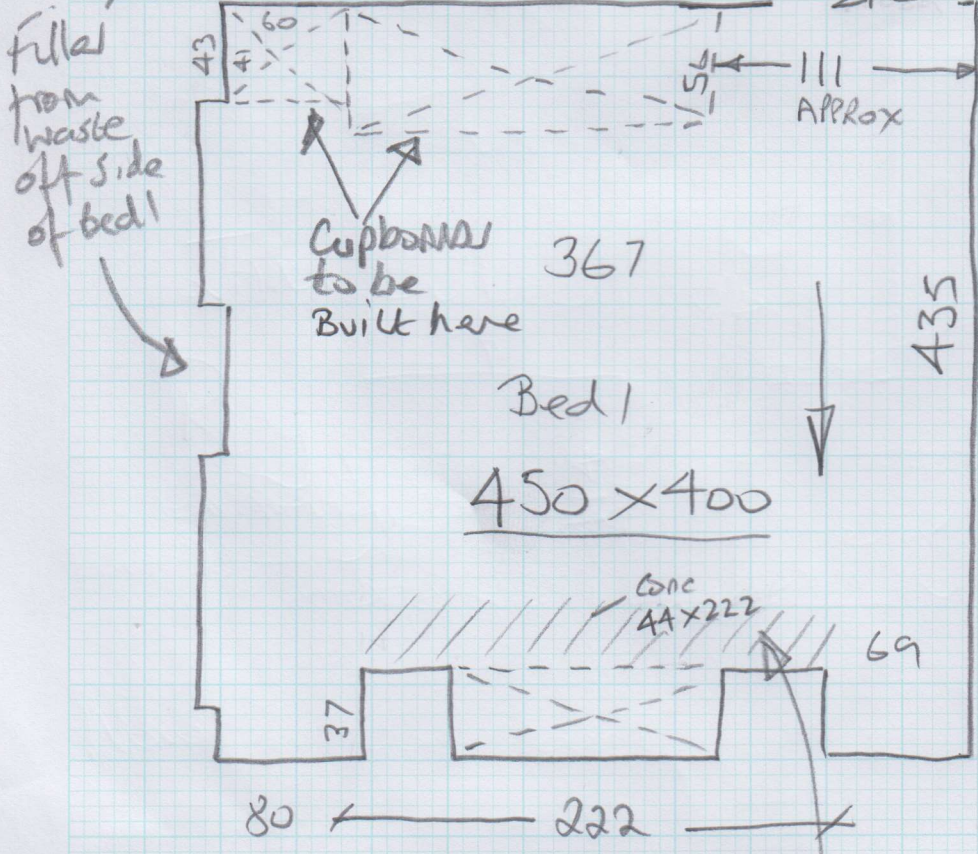 Filler
from
waste
off side
of bed 1
43
41
60
56
111
APPROX
Cupboards
to be
Built here
367
435
Bed 1
450 x 400
Conc
44 x 222
69
37
80
222